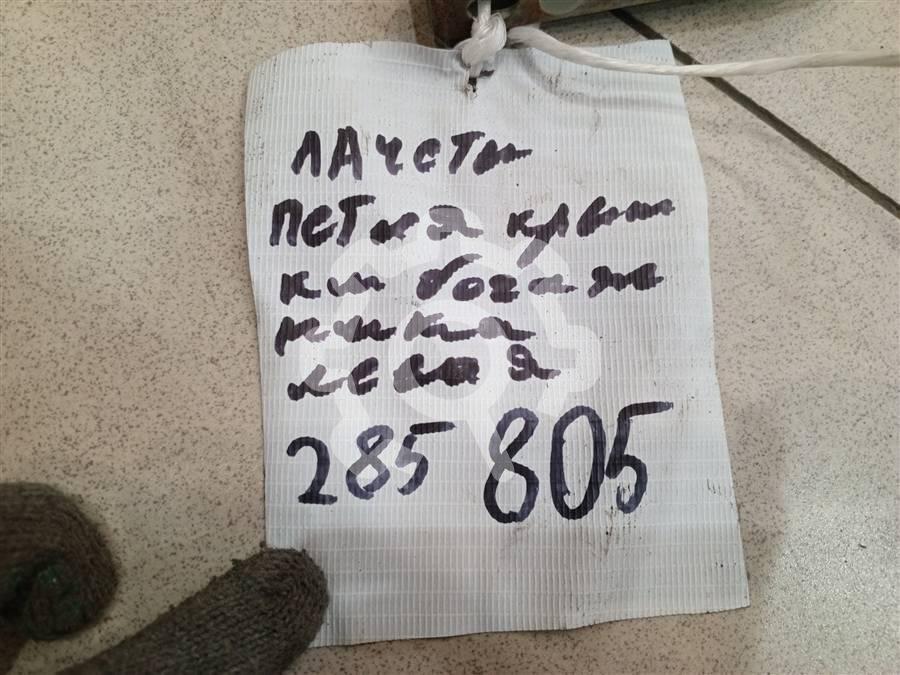 ЛАЧЕТИ
ПЕТЛЯ КРЫШ
КИ БОГАЖ
НИКА
ЛЕВАЯ
285 805